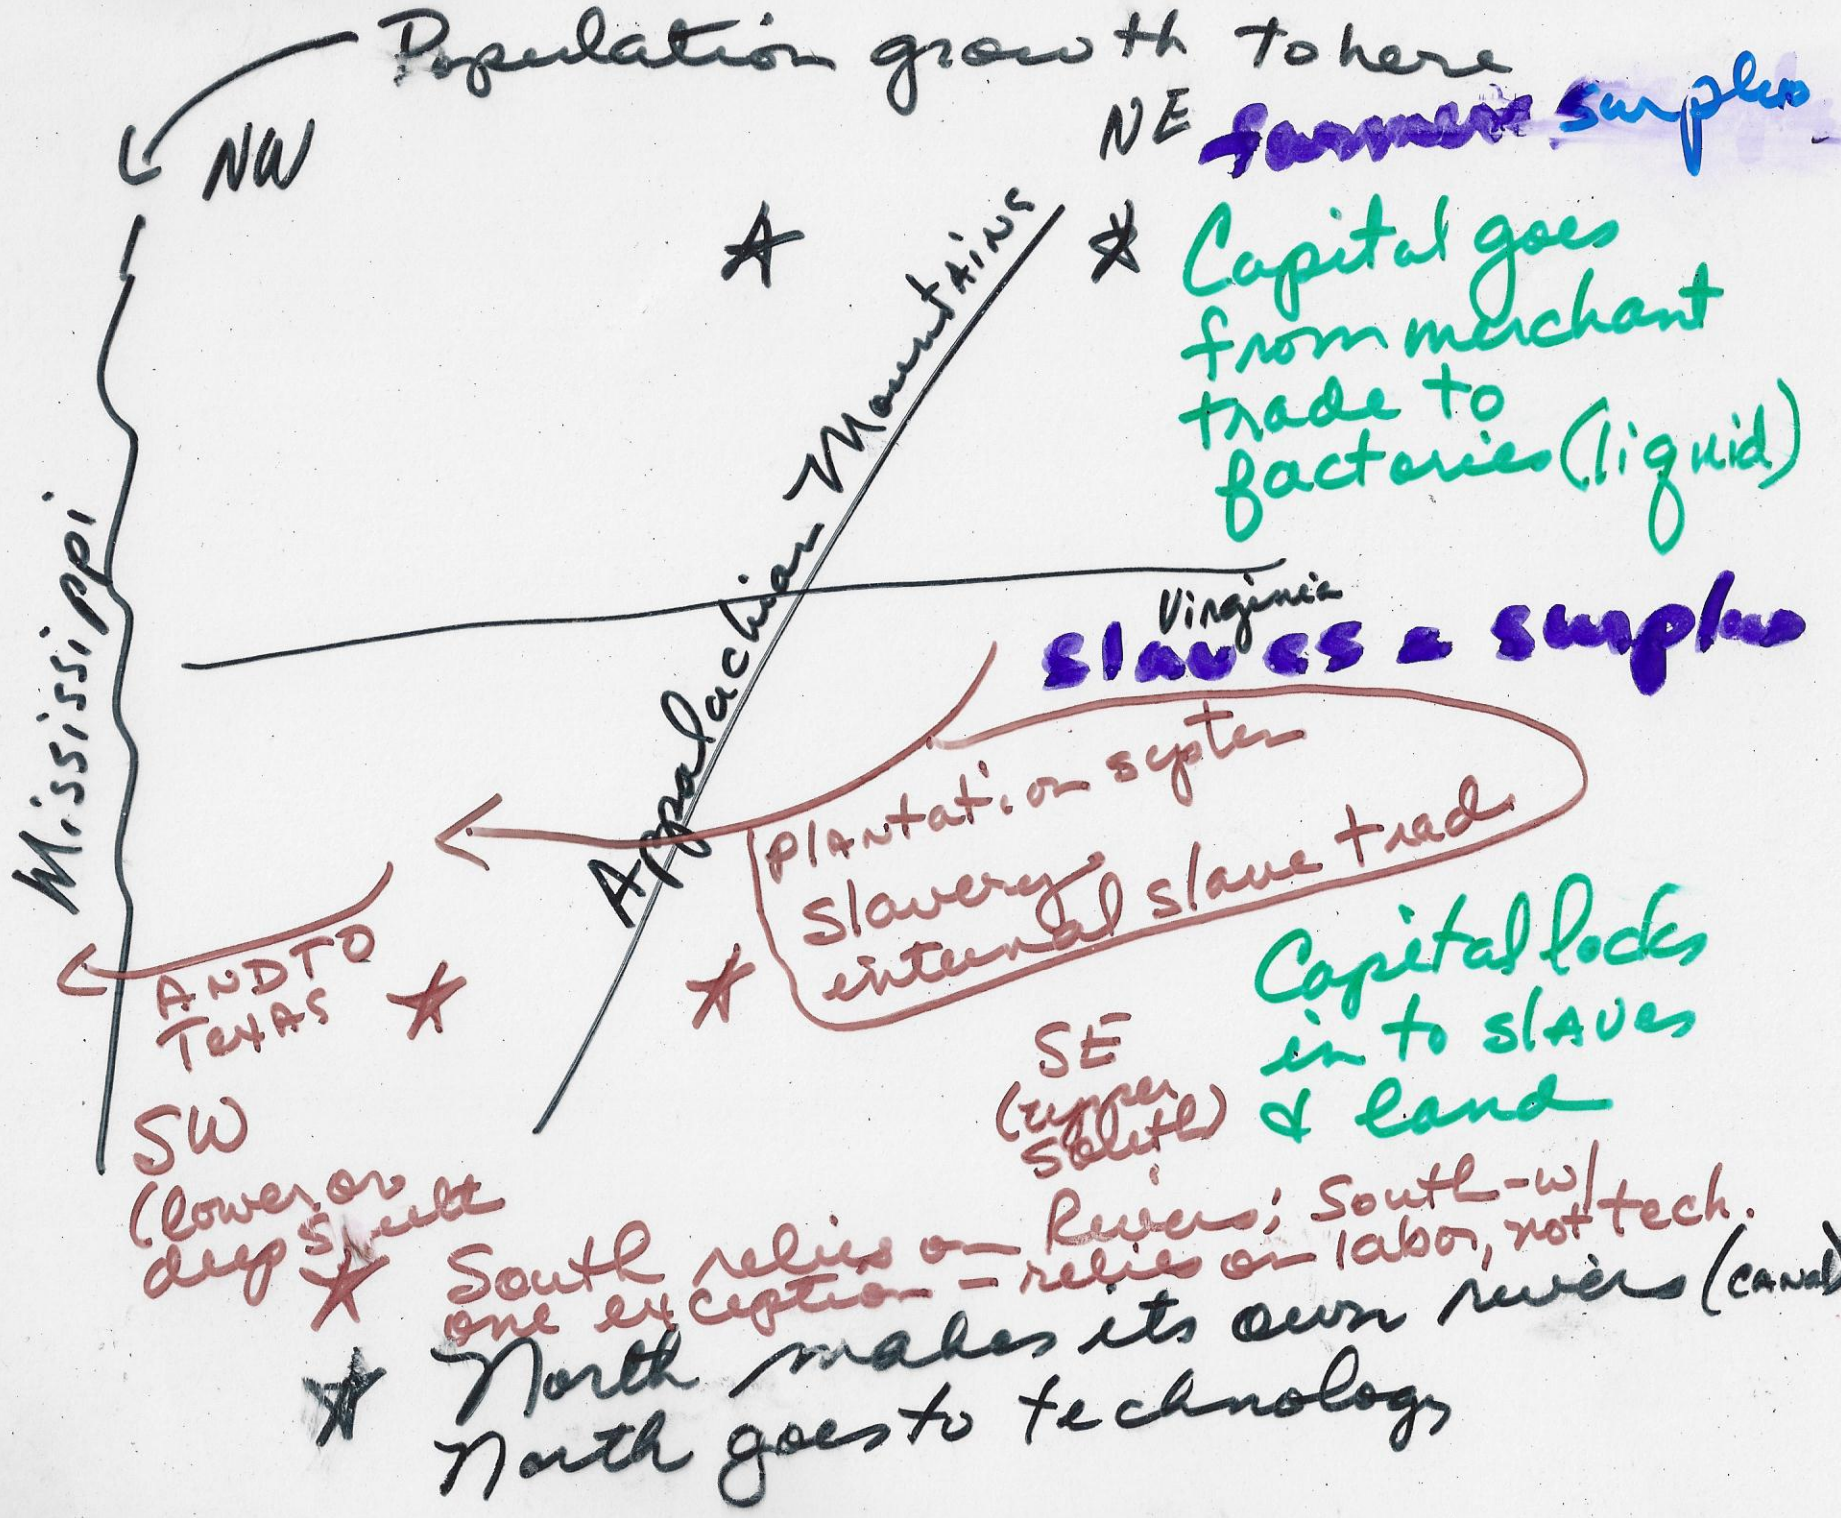 Population growth to here
NW
NE farmers surplus
Capital goes
from merchant
trade to
factories (liquid)
Appalachian Mountains
Mississippi
Virginia
slaves = surplus
plantation system
slavery
internal slave trad
AND TO
TEXAS
SW
(lower or
deep south
SE
(upper
south)
Capital locks
in to slaves
& land
South relies on Rivers; South - w/
one exception - relies on labor, not tech.
North makes its own rivers (canal)
North goes to technology